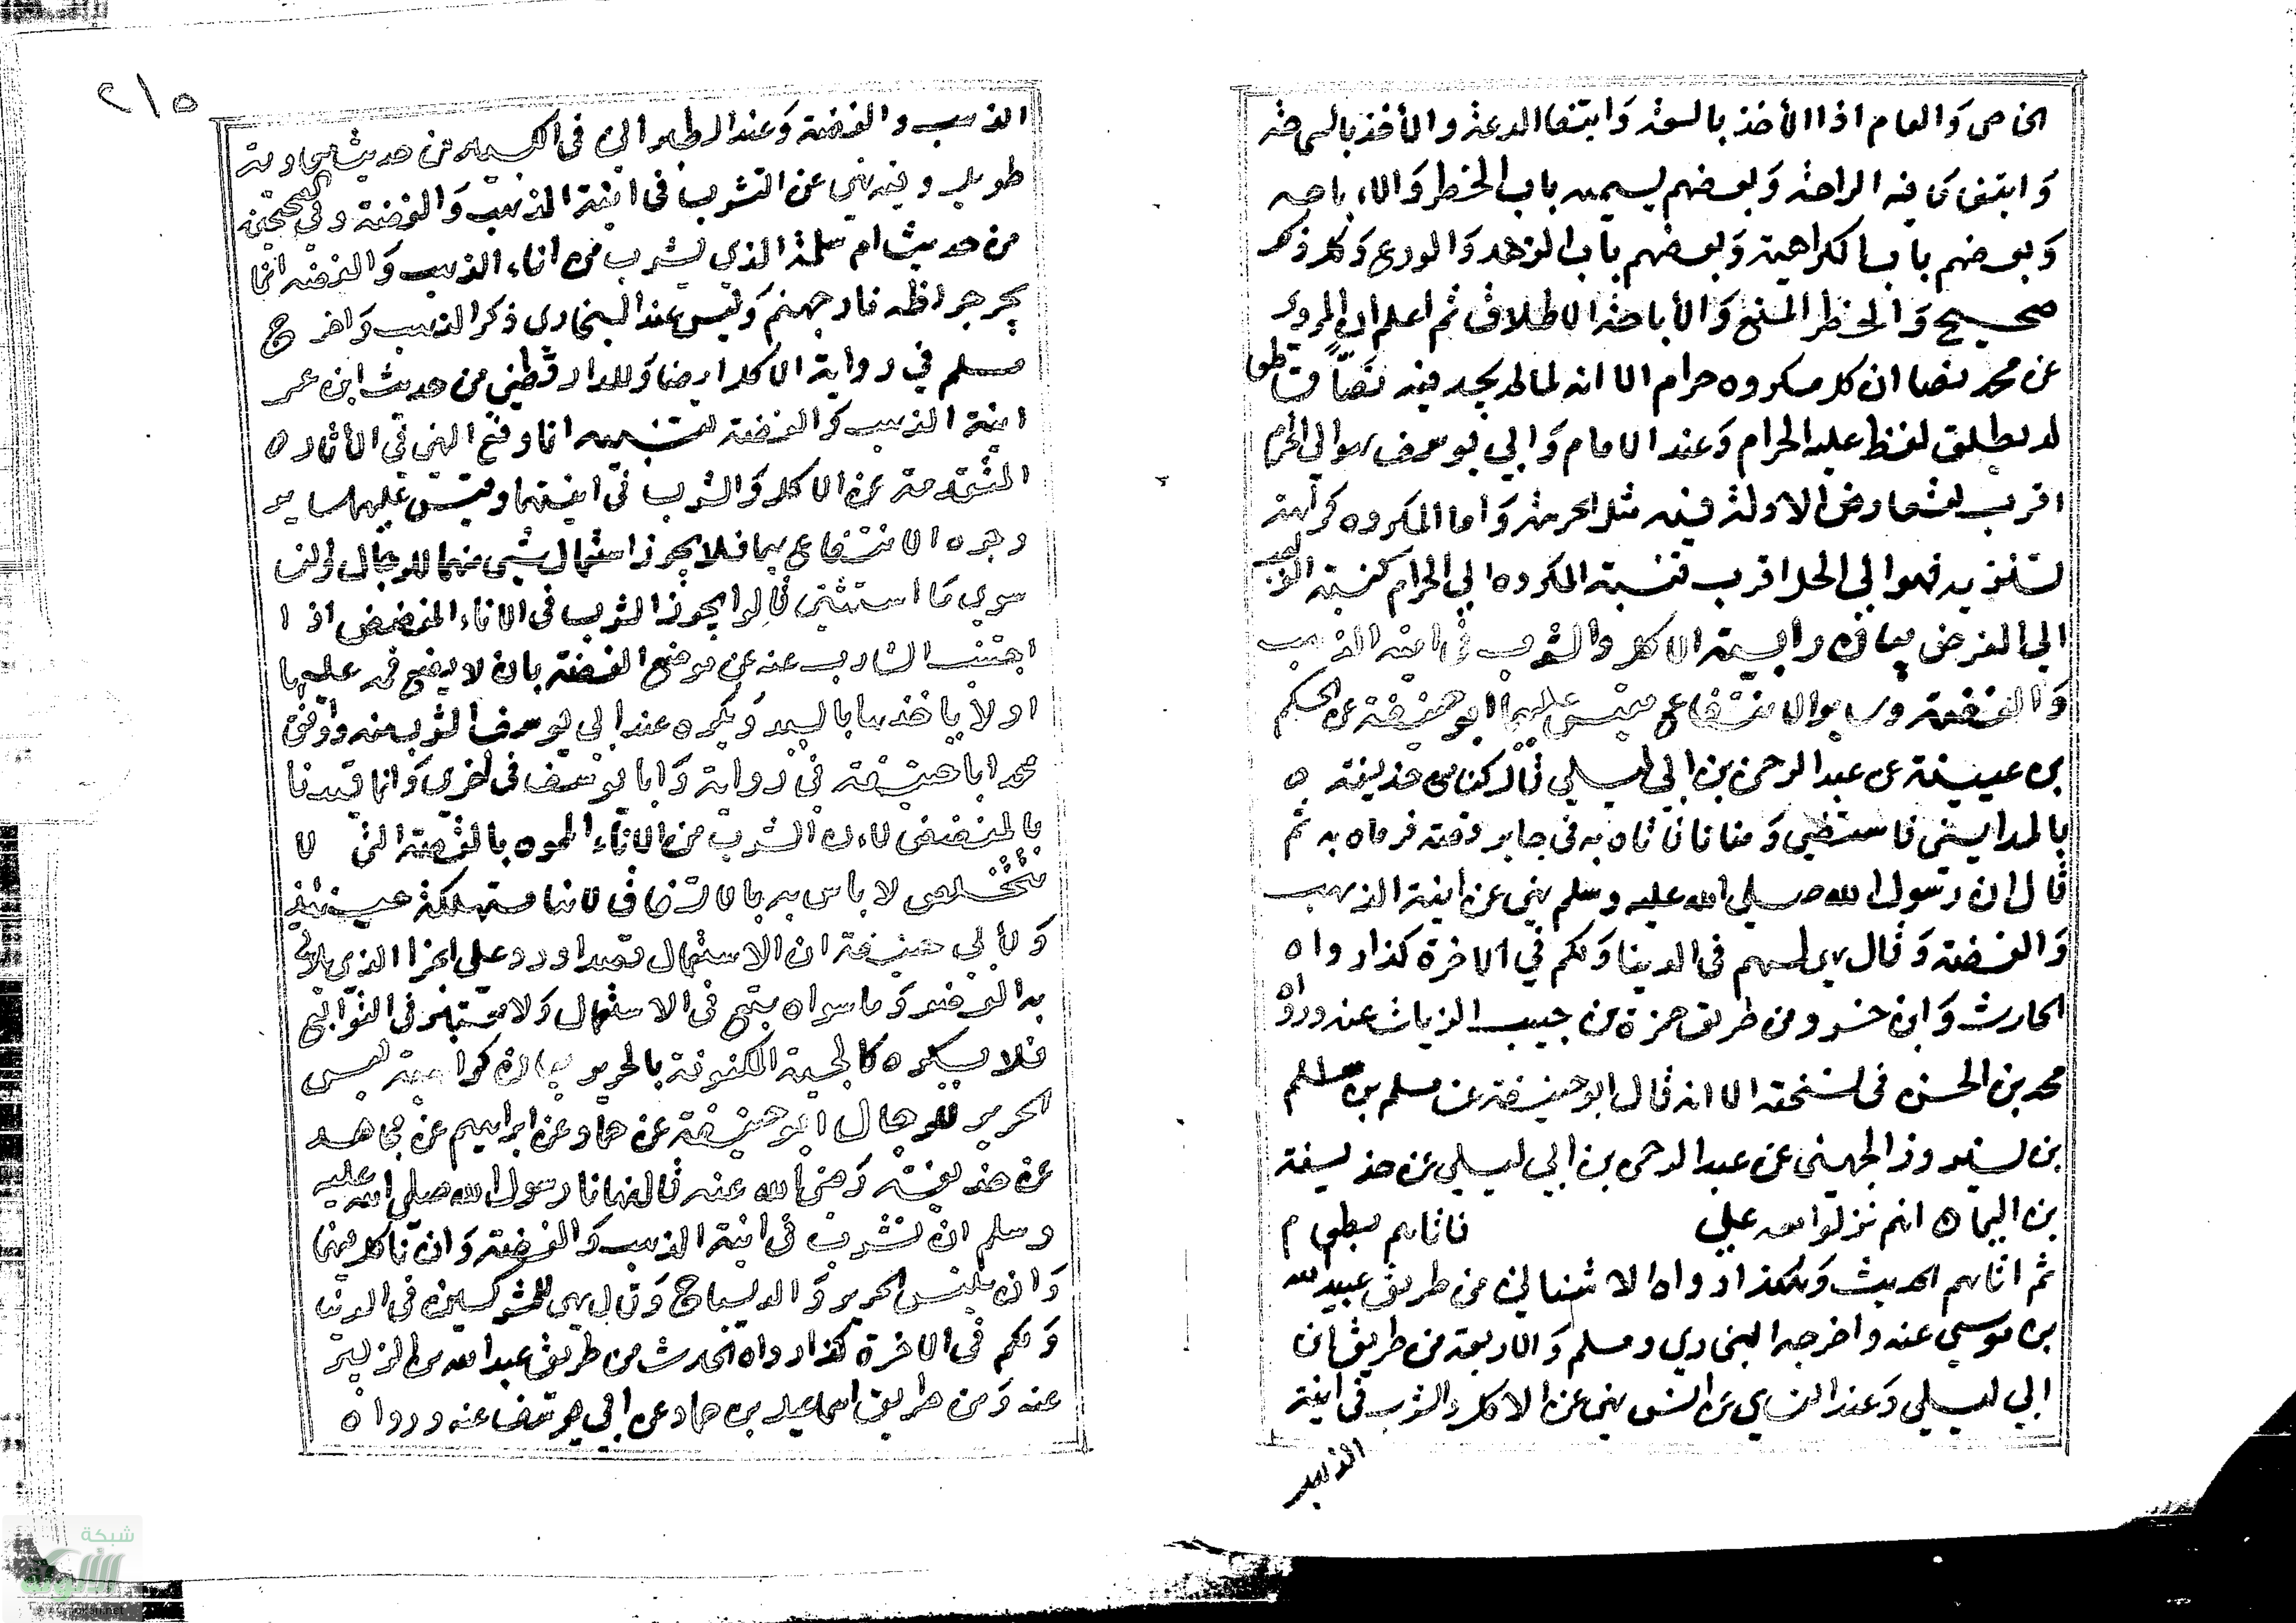 الخاص وَالعام اذا الأخذ بالسعة وَابتغا الدعة والأخذ بالسماحة
وَابتغى ما فيه الراحة وَبعضهم يسميه باب الحظر وَالاباحه
وَبعضهم باب الكراهية وَبعضهم باب الزهد وَالورع وَكل ذكر
صحيح وَالحظر المنع وَالأباحة الاطلاق ثم اعلم ان المروي
عن محمد نصا ان كل مكروه حرام الا انه لما لم يجد فيه نصاً قاطعا
لم يطلق لفظ عليه الحرام وَعند الامام وَابي يوسف هو الي الحرام
اقرب لتعارض الادلة فيه مثل الحرمة وَاما المكروه كراهة
تنزيه فهو الي الحل اقرب فنسبة المكروه الي الحرام كنسبة الواجب
الي الفرض بيان رابية الاكل والشرب في انية الذهب
وَالفضة وساير الانتفاع مقيس عليهما ابو حنيفة عن الحكم
بن عيينة عن عبد الرحمن بن ابي ليلي قال كنا مع حذيفة
بالمداين فاستسقي دهقانا فاتاه به في جام فضة فرماه به ثم
قال ان رسول الله صلي الله عليه وسلم نهي عن انية الذهب
وَالفضة وَقال هي لهم في الدنيا وَلكم في الاخرة كذا رواه
الحارث وَابن خسرو من طريق حمزة بن حبيب الزيات عنه ورواه
محمد بن الحسن في نسخته الا انه قال ابو حنيفة عن مسلم بن سالم
بن فيروز الجهيني عن عبد الرحمن بن ابي ليلي عن حذيفة
بن اليمان انهم نزلوا معه علي فاتاهم بطعام
ثم اتاهم الحديث وَهكذا رواه الاشناني من طريق عبيد الله
بن موسي عنه واخرجه البخاري ومسلم وَالاربعة من طريق ابن
ابي ليلي وَعند النساي عن انس نهي عن الاكل والشرب في انية
الذهب
٢١٥
الذهب والفضة وَعند الطبراني في الكبير من حديث معاوية
طويل وفيه نهي عن الشرب في انية الذهب وَالفضة وفي الصحيحين
من حديث ام سلمة الذي يشرب من اناء الذهب وَالفضه انما
يجرجر في بطنه نار جهنم وَليس عند البخاري ذكر الذهب وَاخرج
مسلم في رواية الاكل ايضا وَللدارقطني من حديث ابن عمر
انية الذهب وَالفضة تنبيه انما وقع النهي في الأثار
المتقدمة عن الاكل وَالشرب في انيتهما وقيس عليهما ساير
وجوه الانتفاع بهما فلا يجوز استعمال شي منهما للرجال والنسا
سوي ما استثني قالوا يجوز الشرب في الاناء المفضض اذا
اجتنب الشارب عنه عن موضع الفضة بان لا يضع فمه عليها
اولا ياخذها باليد وَيكره عند ابي يوسف الشرب منه ووافق
محمد ابا حنيفة في رواية وَابا يوسف في اخري وَانما قيدنا
بالمفضض لان الشرب من الاناء المموه بالفضة التي لا
تتخلص لا باس به بالاتفاق لانها مستهلكة حينئذ
وَلأبي حنيفة ان الاستعمال قصدا ورد علي الجزا الذي يلاقي
به العضو وَما سواه يتبع في الاستعمال وَلا معتبر في التوابع
فلا يكره كالجبة المكفوفة بالحرير بيان كراهية لبس
الحرير للرجال ابو حنيفة عن حماد عن ابراهيم عن مجاهد
عن حذيفة رَضي الله عنه قال نهانا رسول الله صلي الله عليه
وسلم ان نشرب في انية الذهب وَالفضة وَان ناكل فيهما
وَان نلبس الحرير وَالديباج وَقال هي للمشركين في الدنيا
وَلكم في الاخرة كذا رواه الحارث من طريق عبد الله بن الزبير
عنه وَمن طريق اسماعيل بن حماد عن ابي يوسف عنه ورواه
شبكة
الألوكة